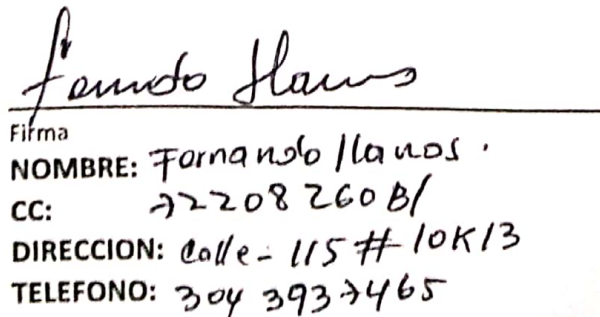 Fernando Llanos
Firma
NOMBRE: Fornando llanos.
CC: 72208260 B/
DIRECCION: Calle- 115 # 10K13
TELEFONO: 304 3937465